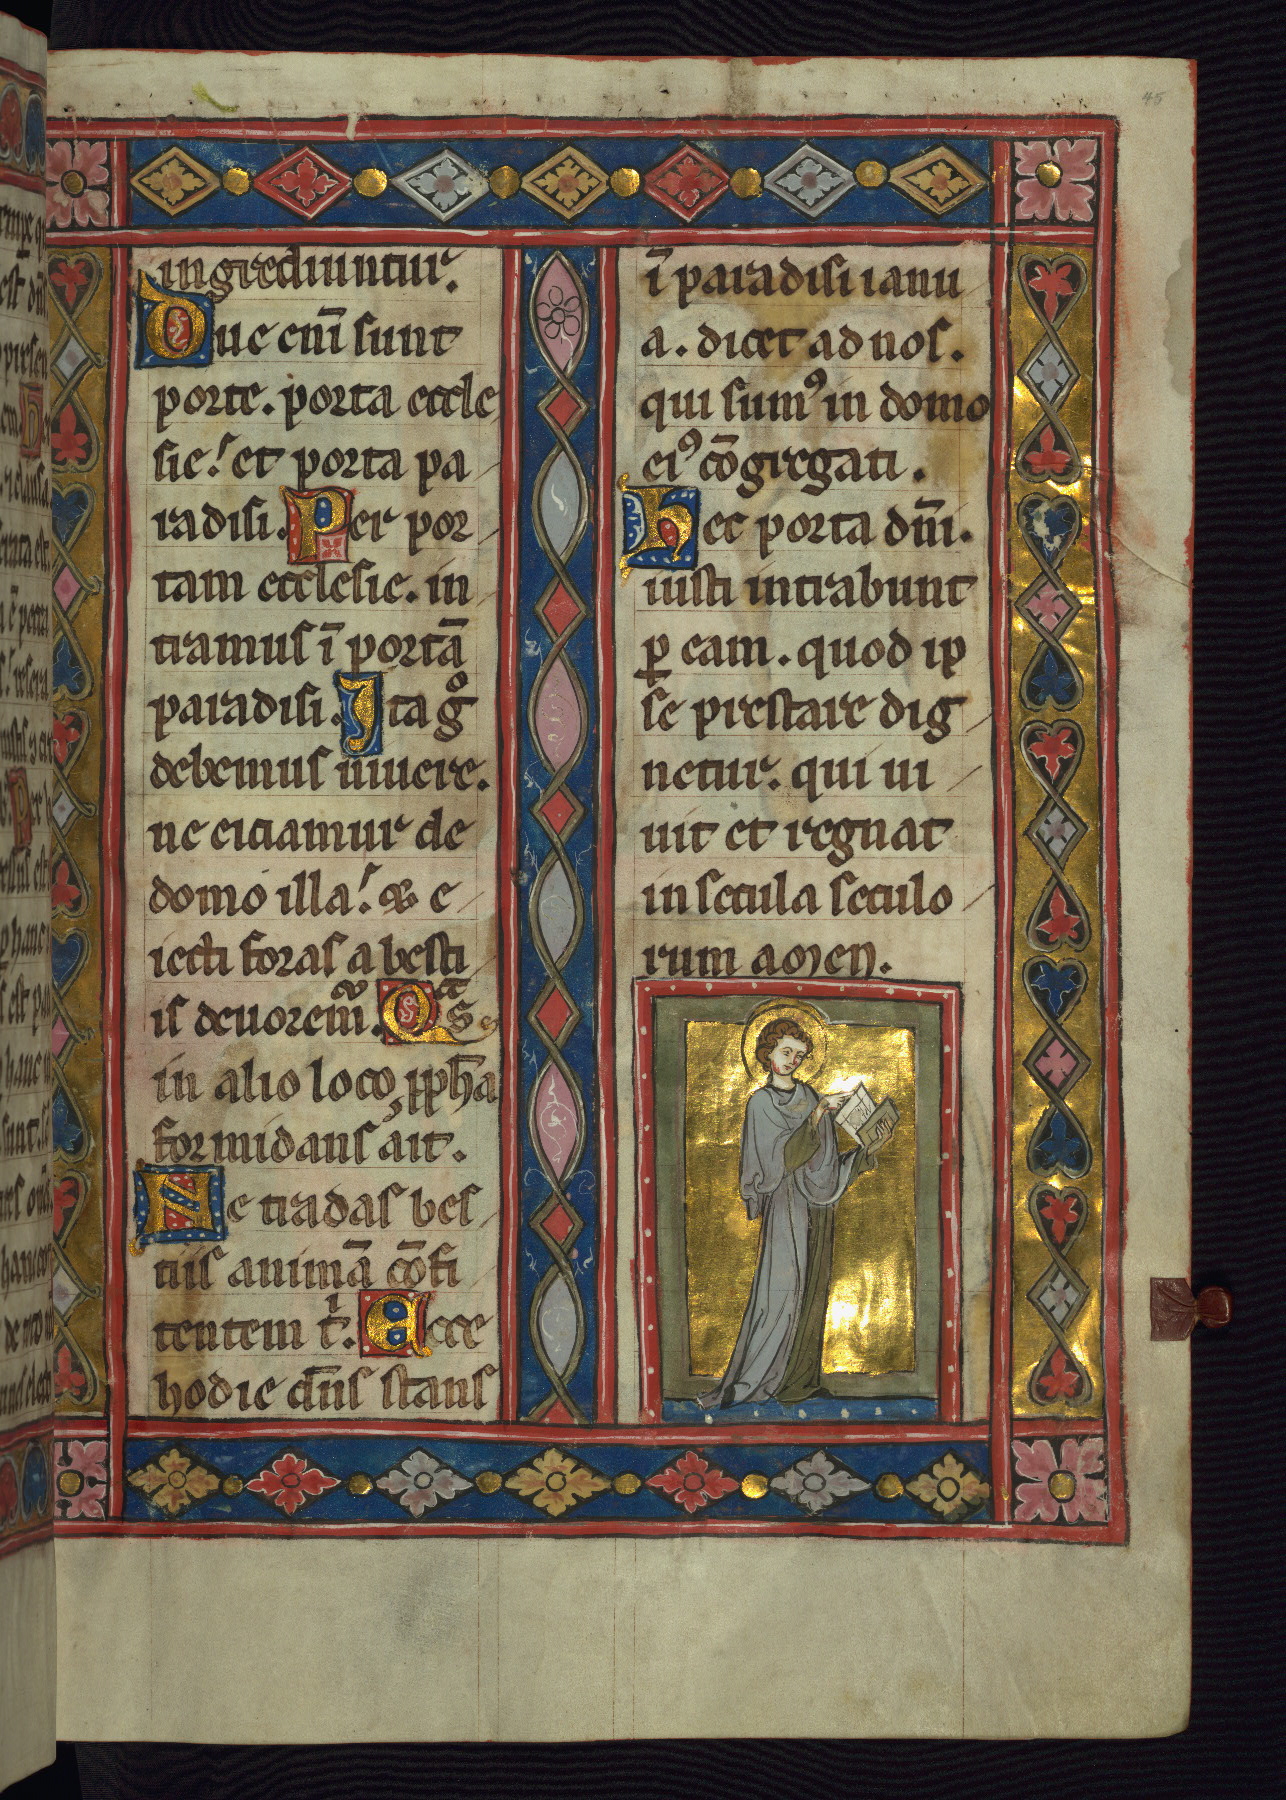 45
ingrediuntur.
Due enī sunt
porte. porta eccle
sie. et porta pa
radisi. Per por
tam ecclesie. in
tramus ī portā
paradisi. Ita gͦ
debemus uiuere.
ne eiciamur de
domo illa. et e
iecti foras a besti
is deuorem̄.
in alio loco ꝓph̄a
formidans ait.
Ne tradas bes
tiis animā cōfi
tentem t̄. Ecce
hodie dn̄s stans
ī paradisi ianu
a. dicet ad nos.
qui sumꝰ in domo
eiꝰ cōgregati.
Hec porta dn̄i.
iusti intrabunt
ꝑ eam. quod ip
se prestare dig
netur. qui ui
uit et regnat
in secula seculo
rum amen.